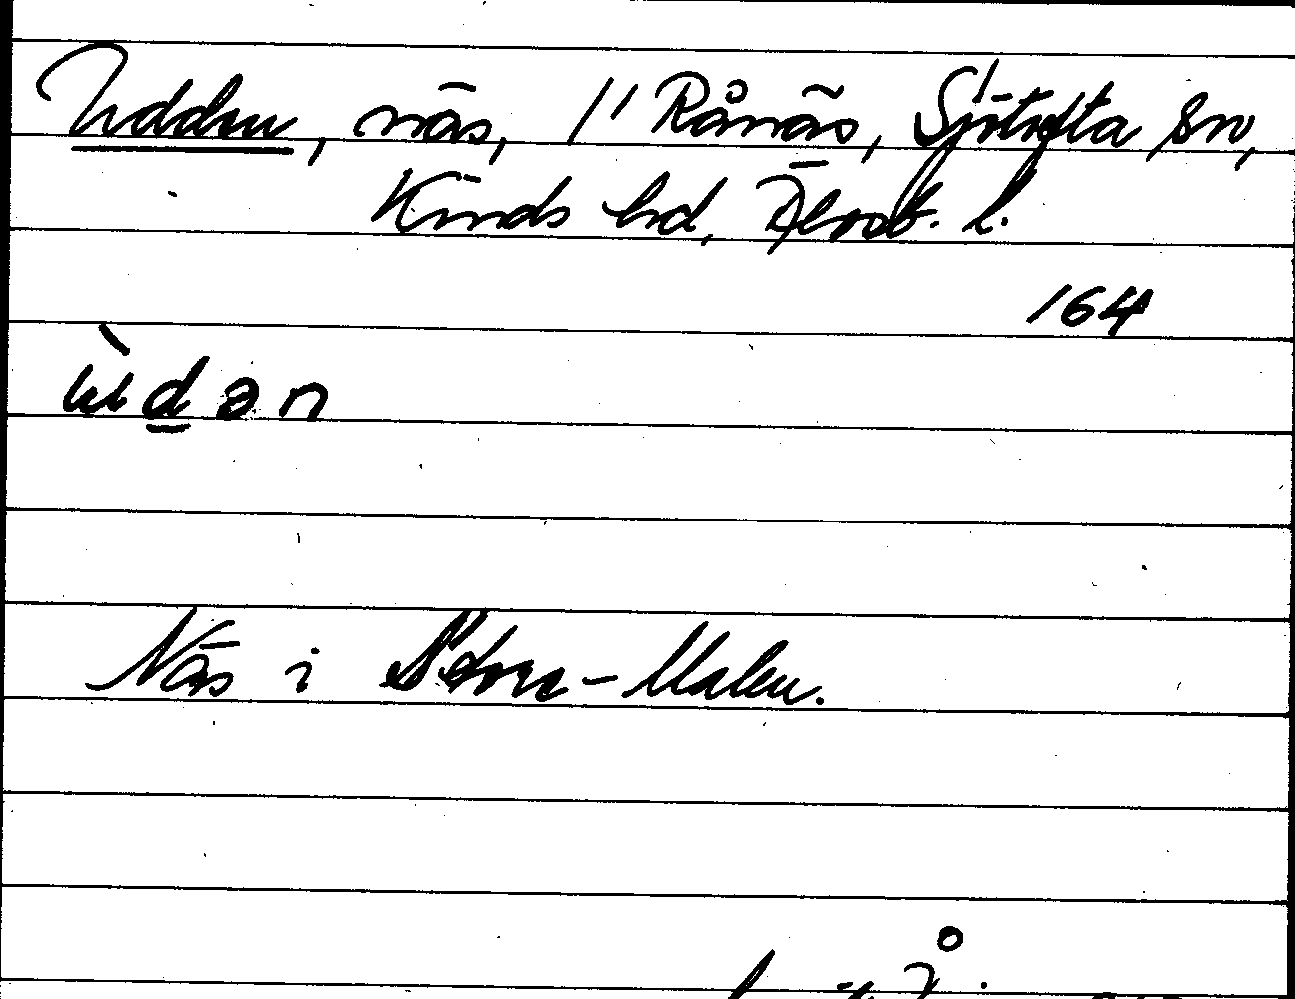 Udden, näs, 1/1 Rånäs, Sjötofta sn,
Kinds hd, Älvsb. l.
164
ùdən
Näs i Stora-Malen.